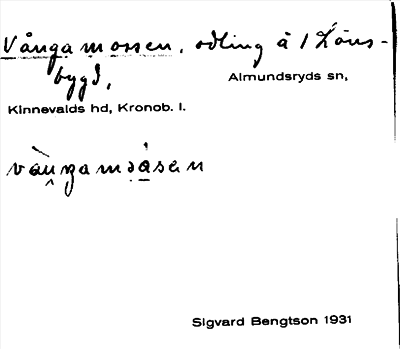 Vångamossen, odling å 1 Löns-
bygd,
Almundsryds sn,
Kinnevalds hd, Kronob. l.
Sigvard Bengtson 1931